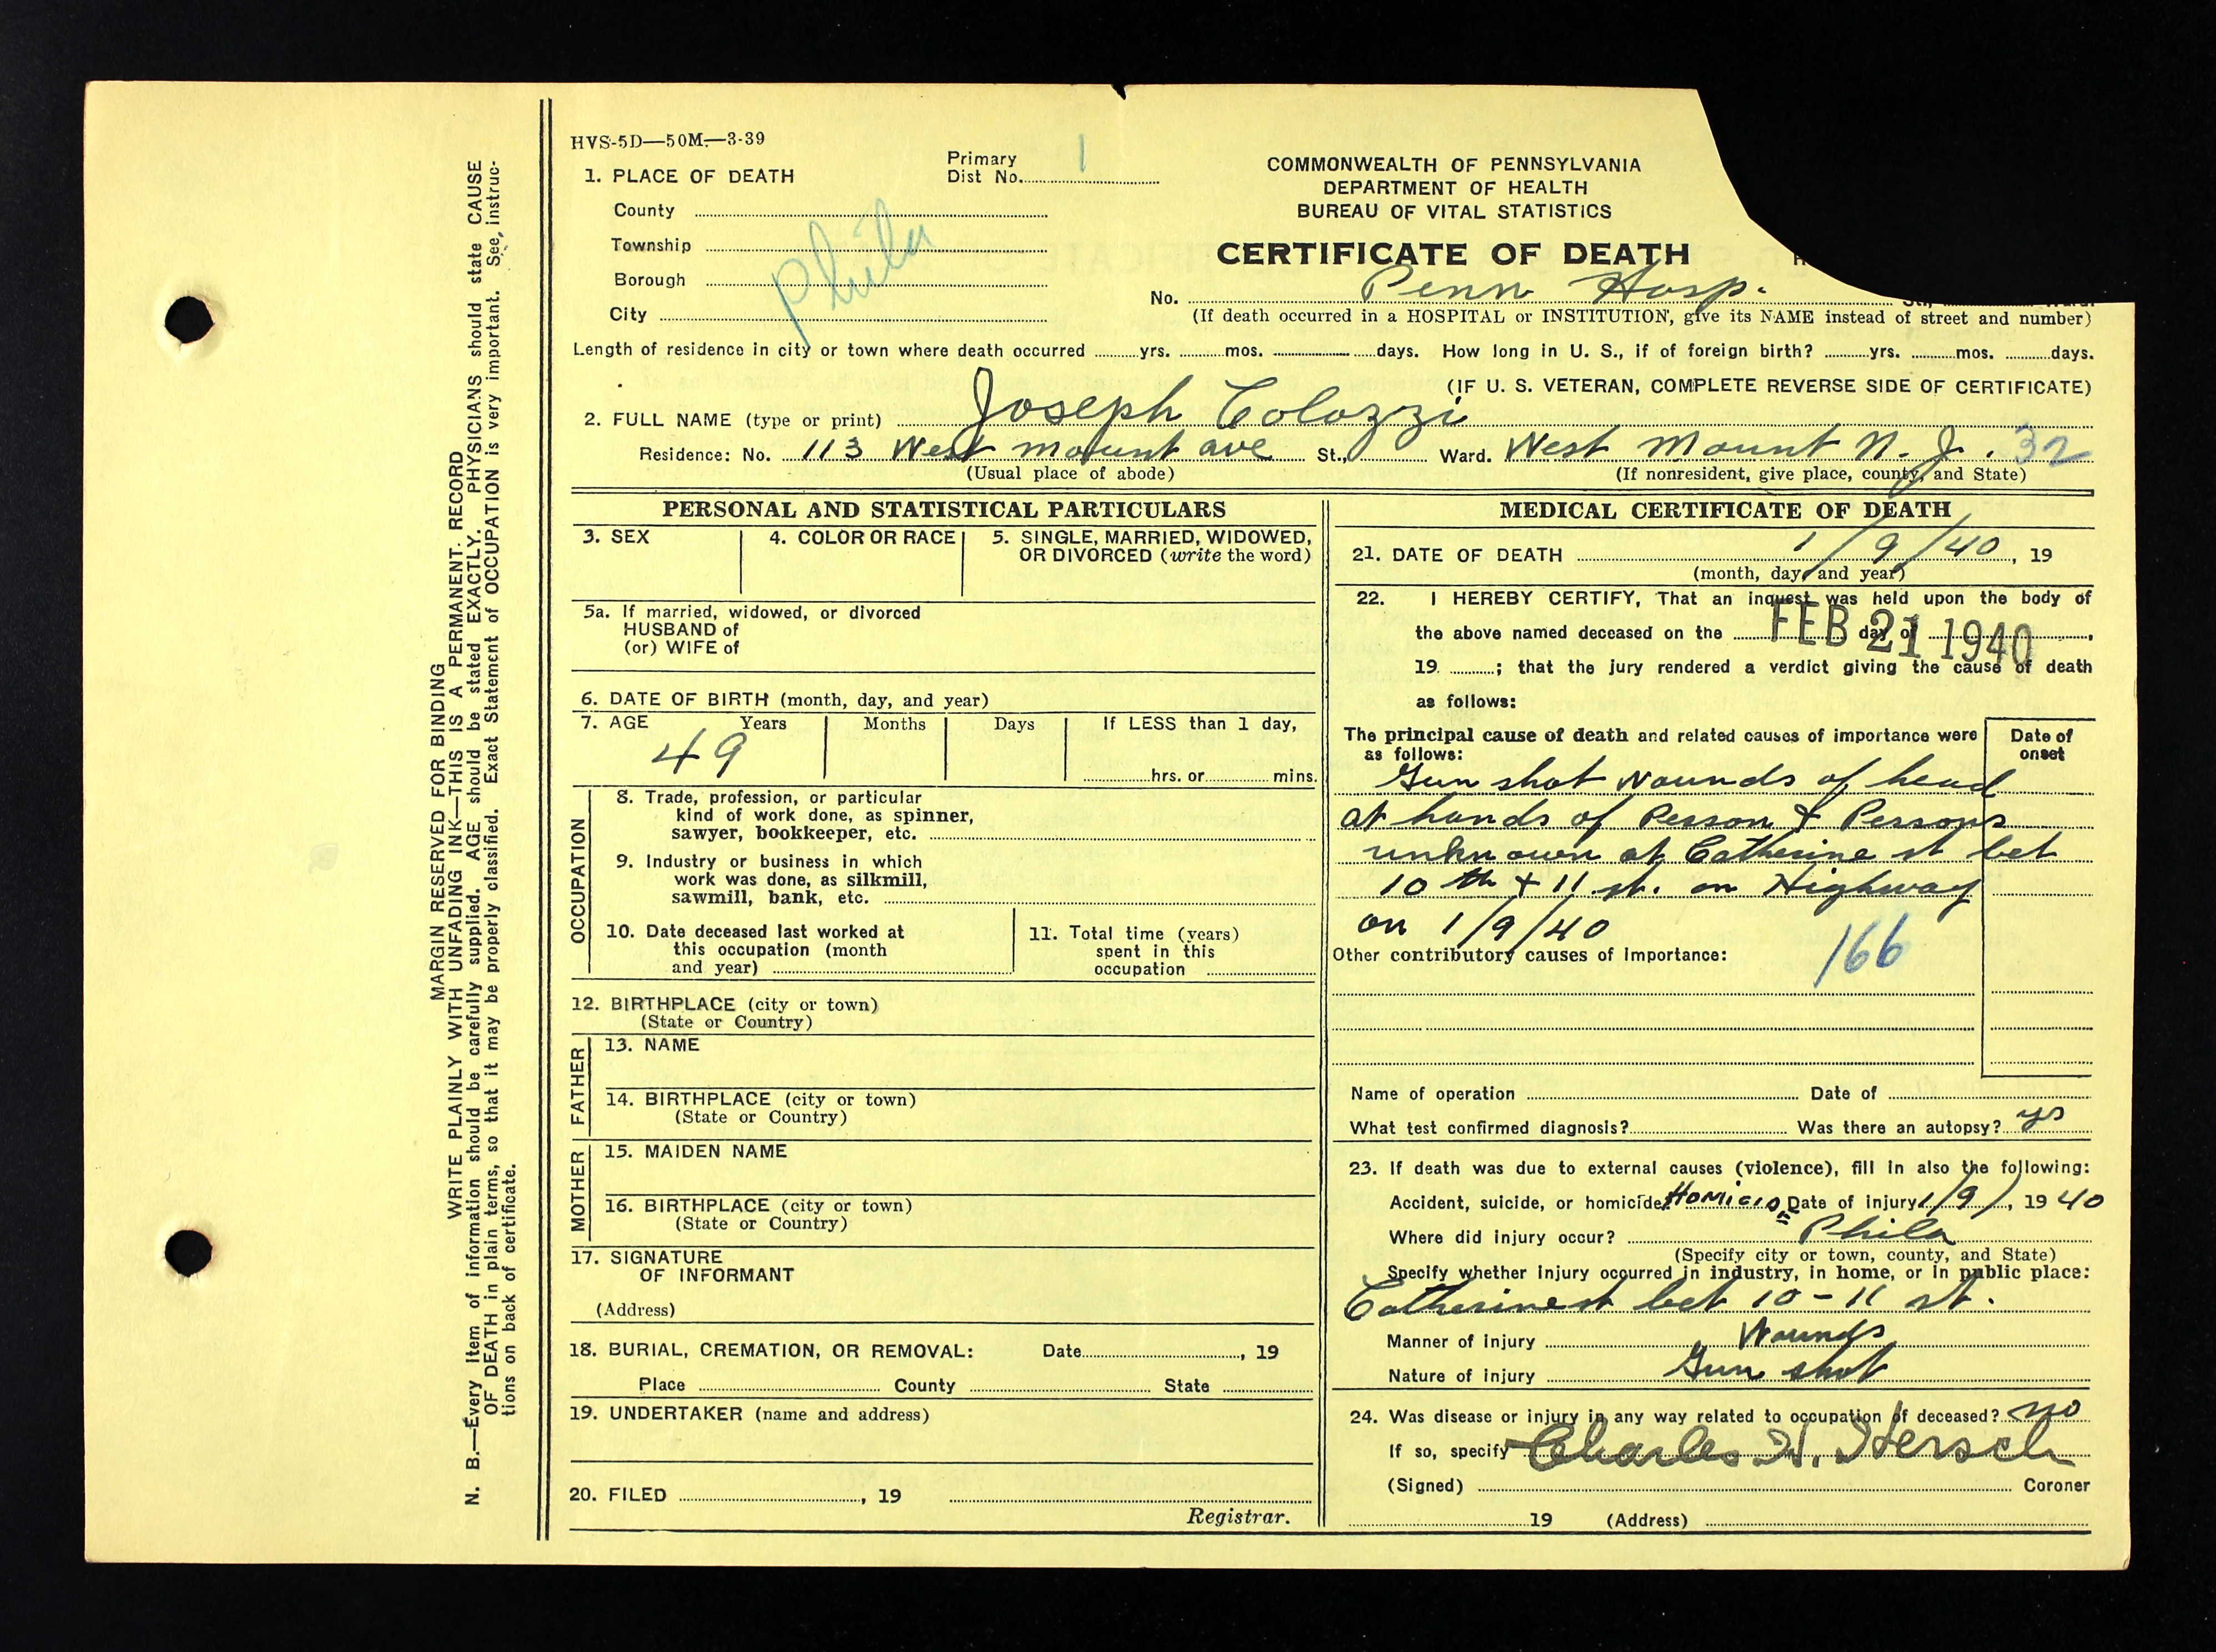 HVS-5D—50M—3-39
1. PLACE OF DEATH
Primary
Dist No. 1
County
Township
Borough
City
Phila
COMMONWEALTH OF PENNSYLVANIA
DEPARTMENT OF HEALTH
BUREAU OF VITAL STATISTICS
CERTIFICATE OF DEATH
No. Penn Hosp.
(If death occurred in a HOSPITAL or INSTITUTION, give its NAME instead of street and number)
Length of residence in city or town where death occurred yrs. mos. days. How long in U. S., if of foreign birth? yrs. mos. days.
(IF U. S. VETERAN, COMPLETE REVERSE SIDE OF CERTIFICATE)
2. FULL NAME (type or print) Joseph Colozzi
Residence: No. 113 West mount ave St., Ward. West Mount N. J. 32
(Usual place of abode) (If nonresident, give place, county, and State)
PERSONAL AND STATISTICAL PARTICULARS
3. SEX
4. COLOR OR RACE
5. SINGLE, MARRIED, WIDOWED,
OR DIVORCED (write the word)
5a. If married, widowed, or divorced
HUSBAND of
(or) WIFE of
6. DATE OF BIRTH (month, day, and year)
7. AGE Years Months Days If LESS than 1 day,
49
hrs. or mins.
OCCUPATION
8. Trade, profession, or particular
kind of work done, as spinner,
sawyer, bookkeeper, etc.
9. Industry or business in which
work was done, as silkmill,
sawmill, bank, etc.
10. Date deceased last worked at
this occupation (month
and year)
11. Total time (years)
spent in this
occupation
12. BIRTHPLACE (city or town)
(State or Country)
FATHER
13. NAME
14. BIRTHPLACE (city or town)
(State or Country)
MOTHER
15. MAIDEN NAME
16. BIRTHPLACE (city or town)
(State or Country)
17. SIGNATURE
OF INFORMANT
(Address)
18. BURIAL, CREMATION, OR REMOVAL: Date , 19
Place County State
19. UNDERTAKER (name and address)
20. FILED , 19
Registrar.
MEDICAL CERTIFICATE OF DEATH
21. DATE OF DEATH 1/9/40, 19
(month, day, and year)
22. I HEREBY CERTIFY, That an inquest was held upon the body of
the above named deceased on the day of ,
FEB 21 1940
19 ; that the jury rendered a verdict giving the cause of death
as follows:
The principal cause of death and related causes of importance were
as follows:
Date of
onset
Gun shot wounds of head
at hands of Person & Persons
unknown at Catherine st bet
10th & 11 st. on Highway
on 1/9/40
Other contributory causes of Importance:
166
Name of operation Date of
What test confirmed diagnosis? Was there an autopsy? yes
23. If death was due to external causes (violence), fill in also the following:
Accident, suicide, or homicide? Homicide Date of injury 1/9/, 1940
Where did injury occur? Phila
(Specify city or town, county, and State)
Specify whether injury occurred in industry, in home, or in public place:
Catherine st bet 10-11 st.
Manner of injury Wounds
Nature of injury Gun shot
24. Was disease or injury in any way related to occupation of deceased? no
If so, specify
Charles H. Hersch
(Signed) Coroner
19 (Address)
MARGIN RESERVED FOR BINDING
WRITE PLAINLY WITH UNFADING INK—THIS IS A PERMANENT RECORD
N. B.—Every item of information should be carefully supplied. AGE should be stated EXACTLY. PHYSICIANS should state CAUSE
OF DEATH in plain terms, so that it may be properly classified. Exact Statement of OCCUPATION is very important. See instruc-
tions on back of certificate.